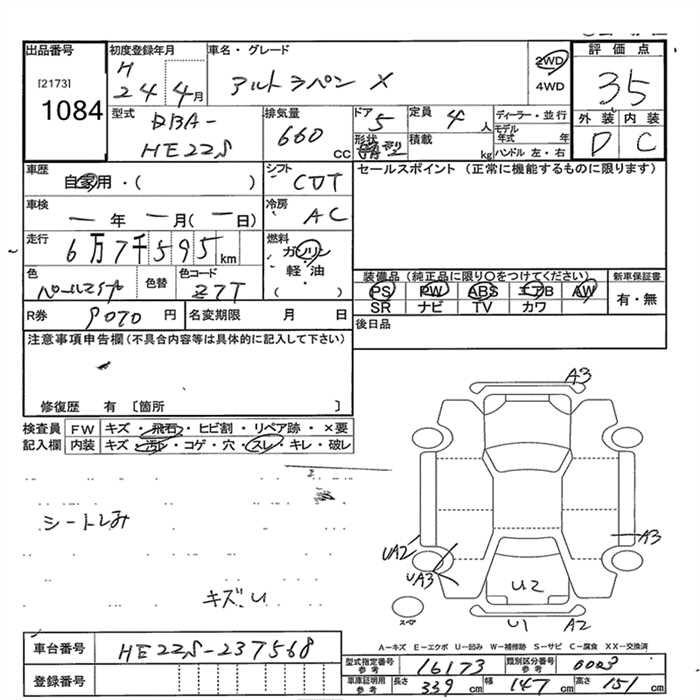 出品番号
[2173]
1084
初度登録年月
H
24 4月
車名・グレード
アルトラパン X
2WD
4WD
評価点
35
外装 内装
D C
型式
DBA-
HE22S
排気量
660 CC
ドア 5
形状
定員 4 人
積載 kg
ディーラー・並行
モデル年式 年
ハンドル 左・右
車歴
自家用・( )
シフト
CVT
セールスポイント (正常に機能するものに限ります)
車検
ー年 ー月(ー日)
冷房
AC
走行
6万7千595km
燃料
ガソリン
・
軽・油
( )
色
パール
色替
色コード
Z7T
装備品(純正品に限り○をつけてください)
PS PW ABS エアB AW
SR ナビ TV カワ
新車保証書
有・無
R券 9070 円
名変期限 月 日
後日品
注意事項申告欄(不具合内容等は具体的に記入して下さい)
修復歴 有 〔箇所 〕
検査員
記入欄
FW キズ・飛石・ヒビ割・リペア跡・×要
内装 キズ・汚レ・コゲ・穴・スレ・キレ・破レ
シートしみ
キズ、U
A3
A3
UA2
UA3
U2
U1
A2
スペア
A−キズ E−エクボ U−凹み W−補修跡 S−サビ C−腐食 XX−交換済
車台番号 HE22S-237568
登録番号
型式指定番号 参考 16173
類別区分番号 参考 0003
車庫証明用 参考 長さ 339 cm 幅 147 cm 高さ 151 cm